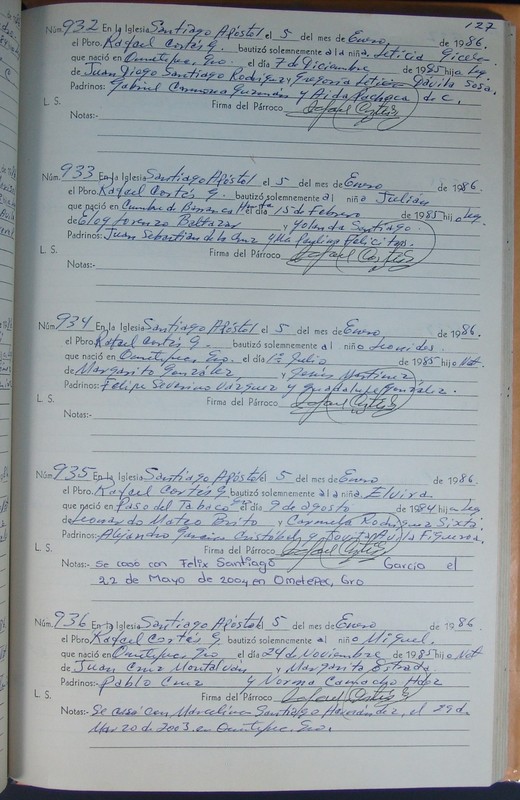 127
Núm. 932 En la Iglesia Santiago Apóstol el 5 del mes de Enero de 1986.
el Pbro. Rafael Cortés G. bautizó solemnemente a la niña Leticia Gisela
que nació en Ometepec, Gro. el día 7 de Diciembre de 1985 hija Leg.
de Juan Diego Santiago Rodríguez y Gregoria Leticia Dávila Sosa.
Padrinos: Gabriel Carmona Guzmán y Aida Pacheca de C.
L. S. Firma del Párroco Rafael Cortés G.
Notas:-
Núm. 933 En la Iglesia Santiago Apóstol el 5 del mes de Enero de 1986.
el Pbro. Rafael Cortés G. bautizó solemnemente al niño Julián
que nació en Cumbre de Barranca Honda el día 15 de Febrero de 1985 hijo Leg.
de Eloy Lorenzo Baltazar y Yolanda Santiago.
Padrinos: Juan Sebastian de la Cruz y Ma Paulina Felicitas.
L. S. Firma del Párroco Rafael Cortés G.
Notas:-
Núm. 934 En la Iglesia Santiago Apóstol el 5 del mes de Enero de 1986.
el Pbro. Rafael Cortés G. bautizó solemnemente al niño Leonides.
que nació en Ometepec, Gro. el día Julio de 1985 hijo Nat.
de Margarito González y Jesús Martínez
Padrinos: Felipe Severino Vázquez y Guadalupe González.
L. S. Firma del Párroco Rafael Cortés G.
Notas:-
Núm. 935 En la Iglesia Santiago Apóstol el 5 del mes de Enero de 1986.
el Pbro. Rafael Cortés G. bautizó solemnemente a la niña Elvira
que nació en Paso del Tabaco el día 9 de agosto de 1984 hija Leg
de Leonardo Mateo Brito y Carmela Rodríguez Sixto.
Padrinos: Alejandro García Cristóbal y Ávila Figueroa.
L. S. Firma del Párroco Rafael Cortés G.
Notas:- Se casó con Felix Santiago Garcia el
22 de Mayo de 2004 en Ometepec, Gro
Núm. 936 En la Iglesia Santiago Apóstol el 5 del mes de Enero de 1986.
el Pbro. Rafael Cortés G. bautizó solemnemente al niño Miguel.
que nació en Ometepec, Gro el día 24 de Noviembre de 1985 hijo Nat
de Juan Cruz Montalván y Margarita Estrada
Padrinos:- Pablo Cruz y Norma Camacho Hdez
L. S. Firma del Párroco Rafael Cortés G
Notas:- Se casó con Marcelina Santiago Hernández, el 29 de
Marzo de 2003 en Ometepec, Gro.